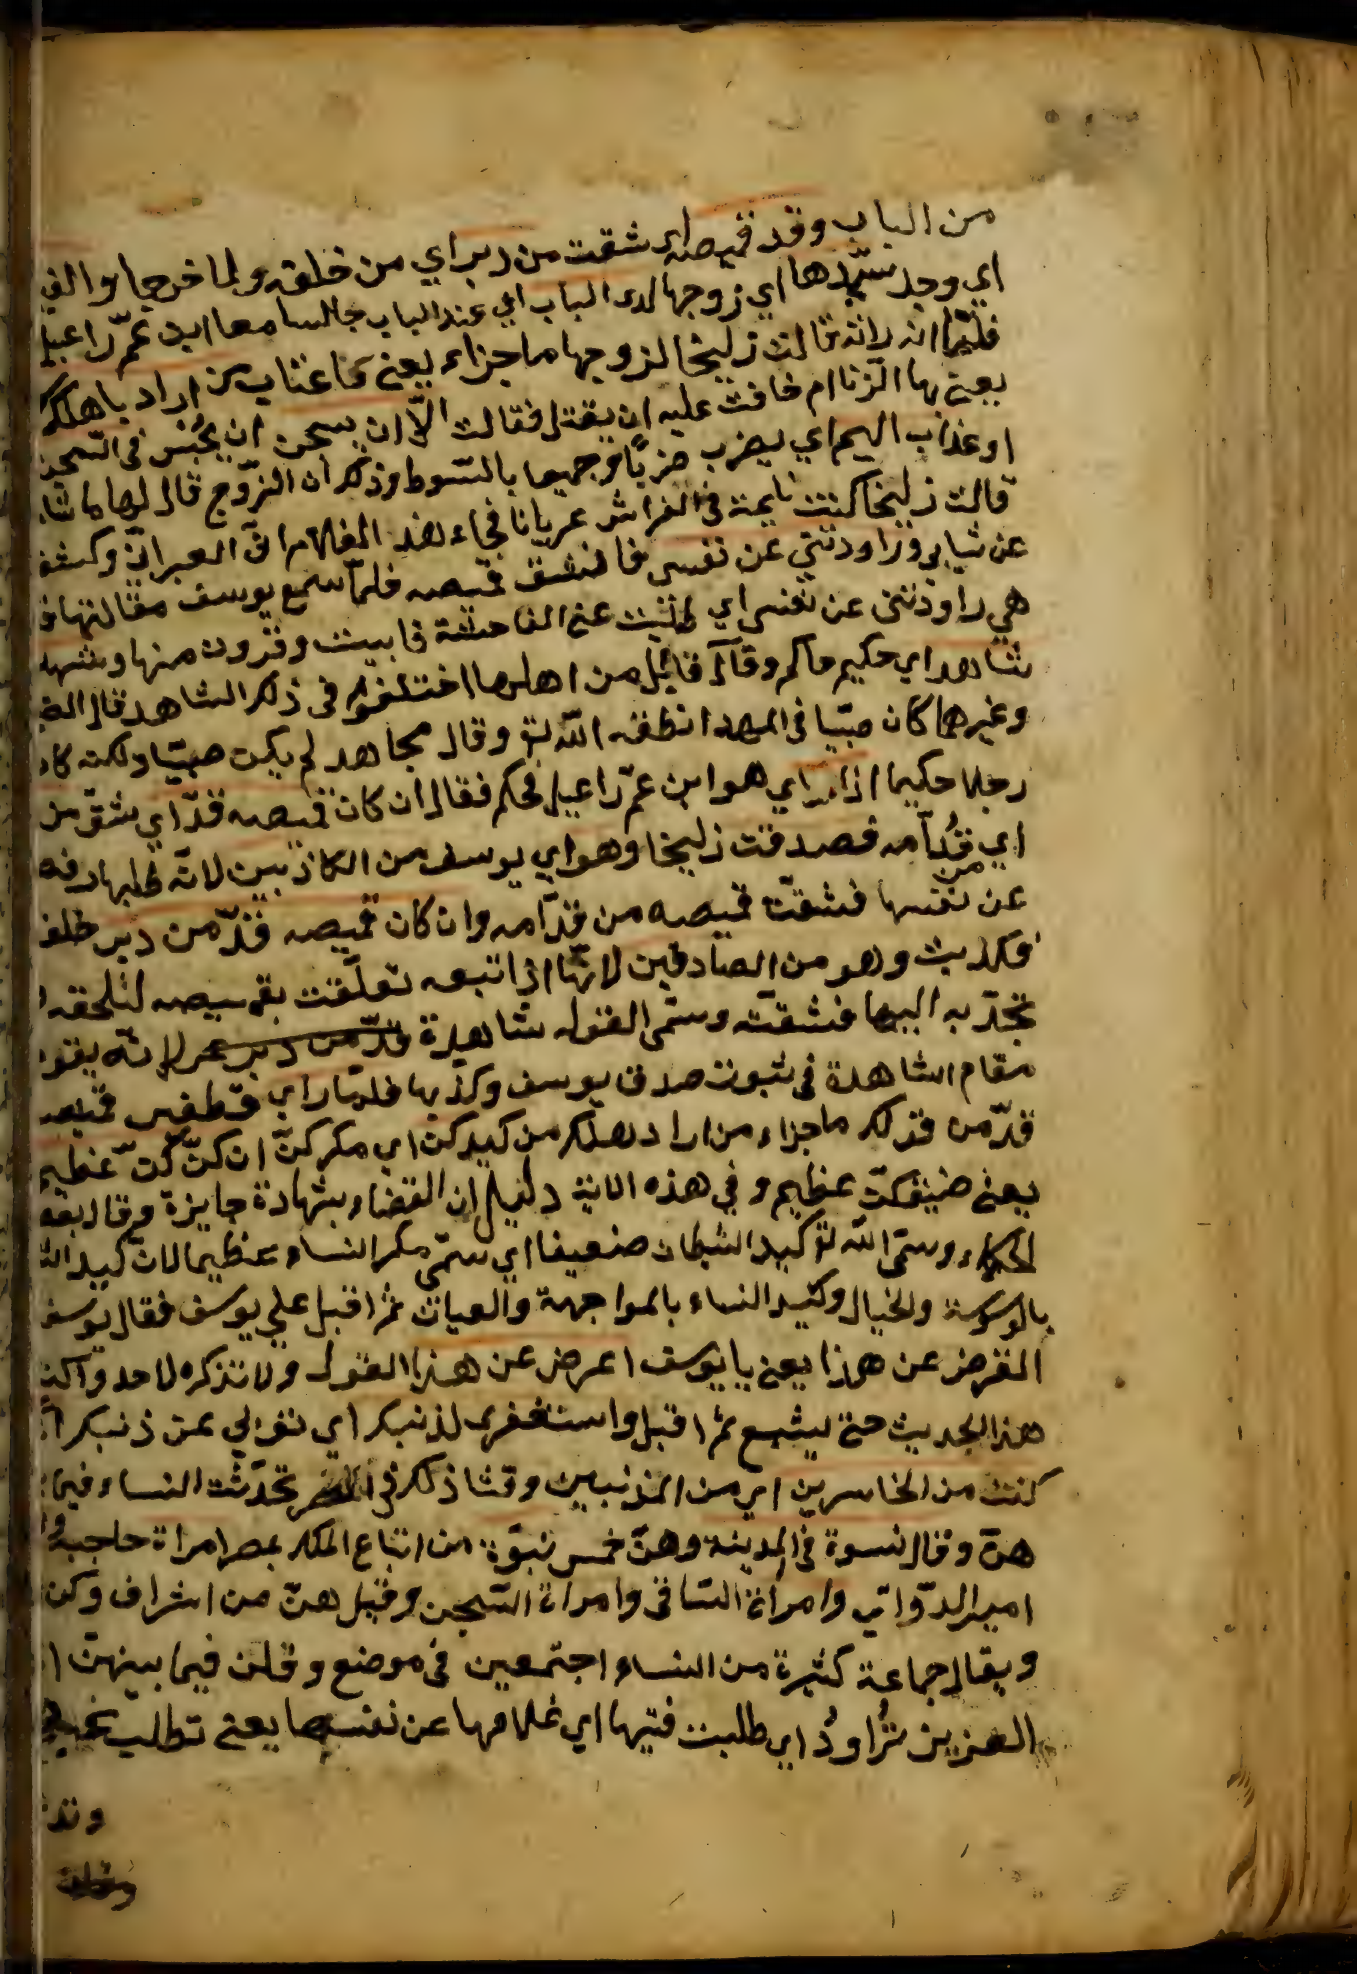 من الباب وقد قميصه اى شقت من دبر اي من خلفه ولما خرجا والفيا
اي وجد سيّدها اي زوجها لدى الباب اي عند الباب جالسا مع ابن عمّ راعيل
فلما قالت زليخا لزوجها ما جزاء يعنى ما عتاب من اراد باهلك
يعنى بها الزنا ثم خافت عليه ان يقتل فقالت الاّ ان يسجن ان يحُبس فى السّجن
او عذاب اليم اي يضرب ضربًا وجيعا بالسّوط وذكر ان الزّوج قال لها ما شا
قالت زليخا كنت نايمة فى الفراش عريانا فجاء هذ الغلام العبرانّ وكشف
عن ثيابى وراودنى عن نفسى فانشقّ قميصه فلمّا سمع يوسف مقالتها
هي راودتنى عن نفسى اي طلبت عنى الفاحشة فابيت وفررت منها وشهد
شاهد اي حكيم حاكم وقال قائل من اهلها اختلفوا فى ذلك الشاهد قال
وغيرهما كان صبّيا فى المهد انطقه اللّه تع وقال مجاهد لم يكن صبيّا ولكنه كان
رجلا حكيما اذا راي هو ابن عمّ راعيل فحكم فقال ان كان قميصه قدّ اي شقّ من
اي قدُّامه فصدقت زليخا وهو اي يوسف من الكاذبين لانّه طلبها
عن نفسها فشقتّ قميصه من قدّامه وان كان قميصه قدّ من دبر خلف
فكذبت وهو من الصادقين لانّها اذا تبعه تعلّقت بقميصه لتلحقه
تجدّ به اليها فشقتّه وسمّى القول شاهدة قدّ من دبر لانّه يقو
مقام الشاهدة فى ثبوت صدق يوسف وكذبها فلمّا راي قطفير قميصه
قدّ من قولك ما جزاء من اراد اهلك من كيدكن اي مكركنّ ان كيدكنّ عظيم
يعنى عظيم وفي هذه الاية دليل ان القضاء بشهادة جايزة وقال بعض
الحكماء وسمّى اللّه تع كيد الشيطان ضعيفا اي سمّى مكر النساء عظيما لان كيد
بالوسوسة والخيال وكيد النساء بالمواجهة والعيان ثم اقبل علي يوسف فقال يوسف
اعرض عن هذا يعنى يا يوسف اعرض عن هذا القول ولا تذكره لاحد واكتم
هذا الحديث حتى يشيع ثم اقبل واستغفرى لذنبك اي توبى عن ذنبك
كنت من الخاسرين اي من المذنبين وفشا ذلك فى تحدّثت النساء فيما
هنّ وقال نسوة فى المدينة وهنّ خمس نسوة من اتباع الملك بمصر امراة حاجبه
امير الدّواب وامراة السّاقى وامراة السّجن وقيل هنّ من اشراف وكن
ويقال جماعة كثيرة من النساء اجتمعين فى موضع وقلن فيما بينهنّ
العزيز تُراودُ اي طلبت فتيها اي غلامها عن نفسه يعنى تطلب